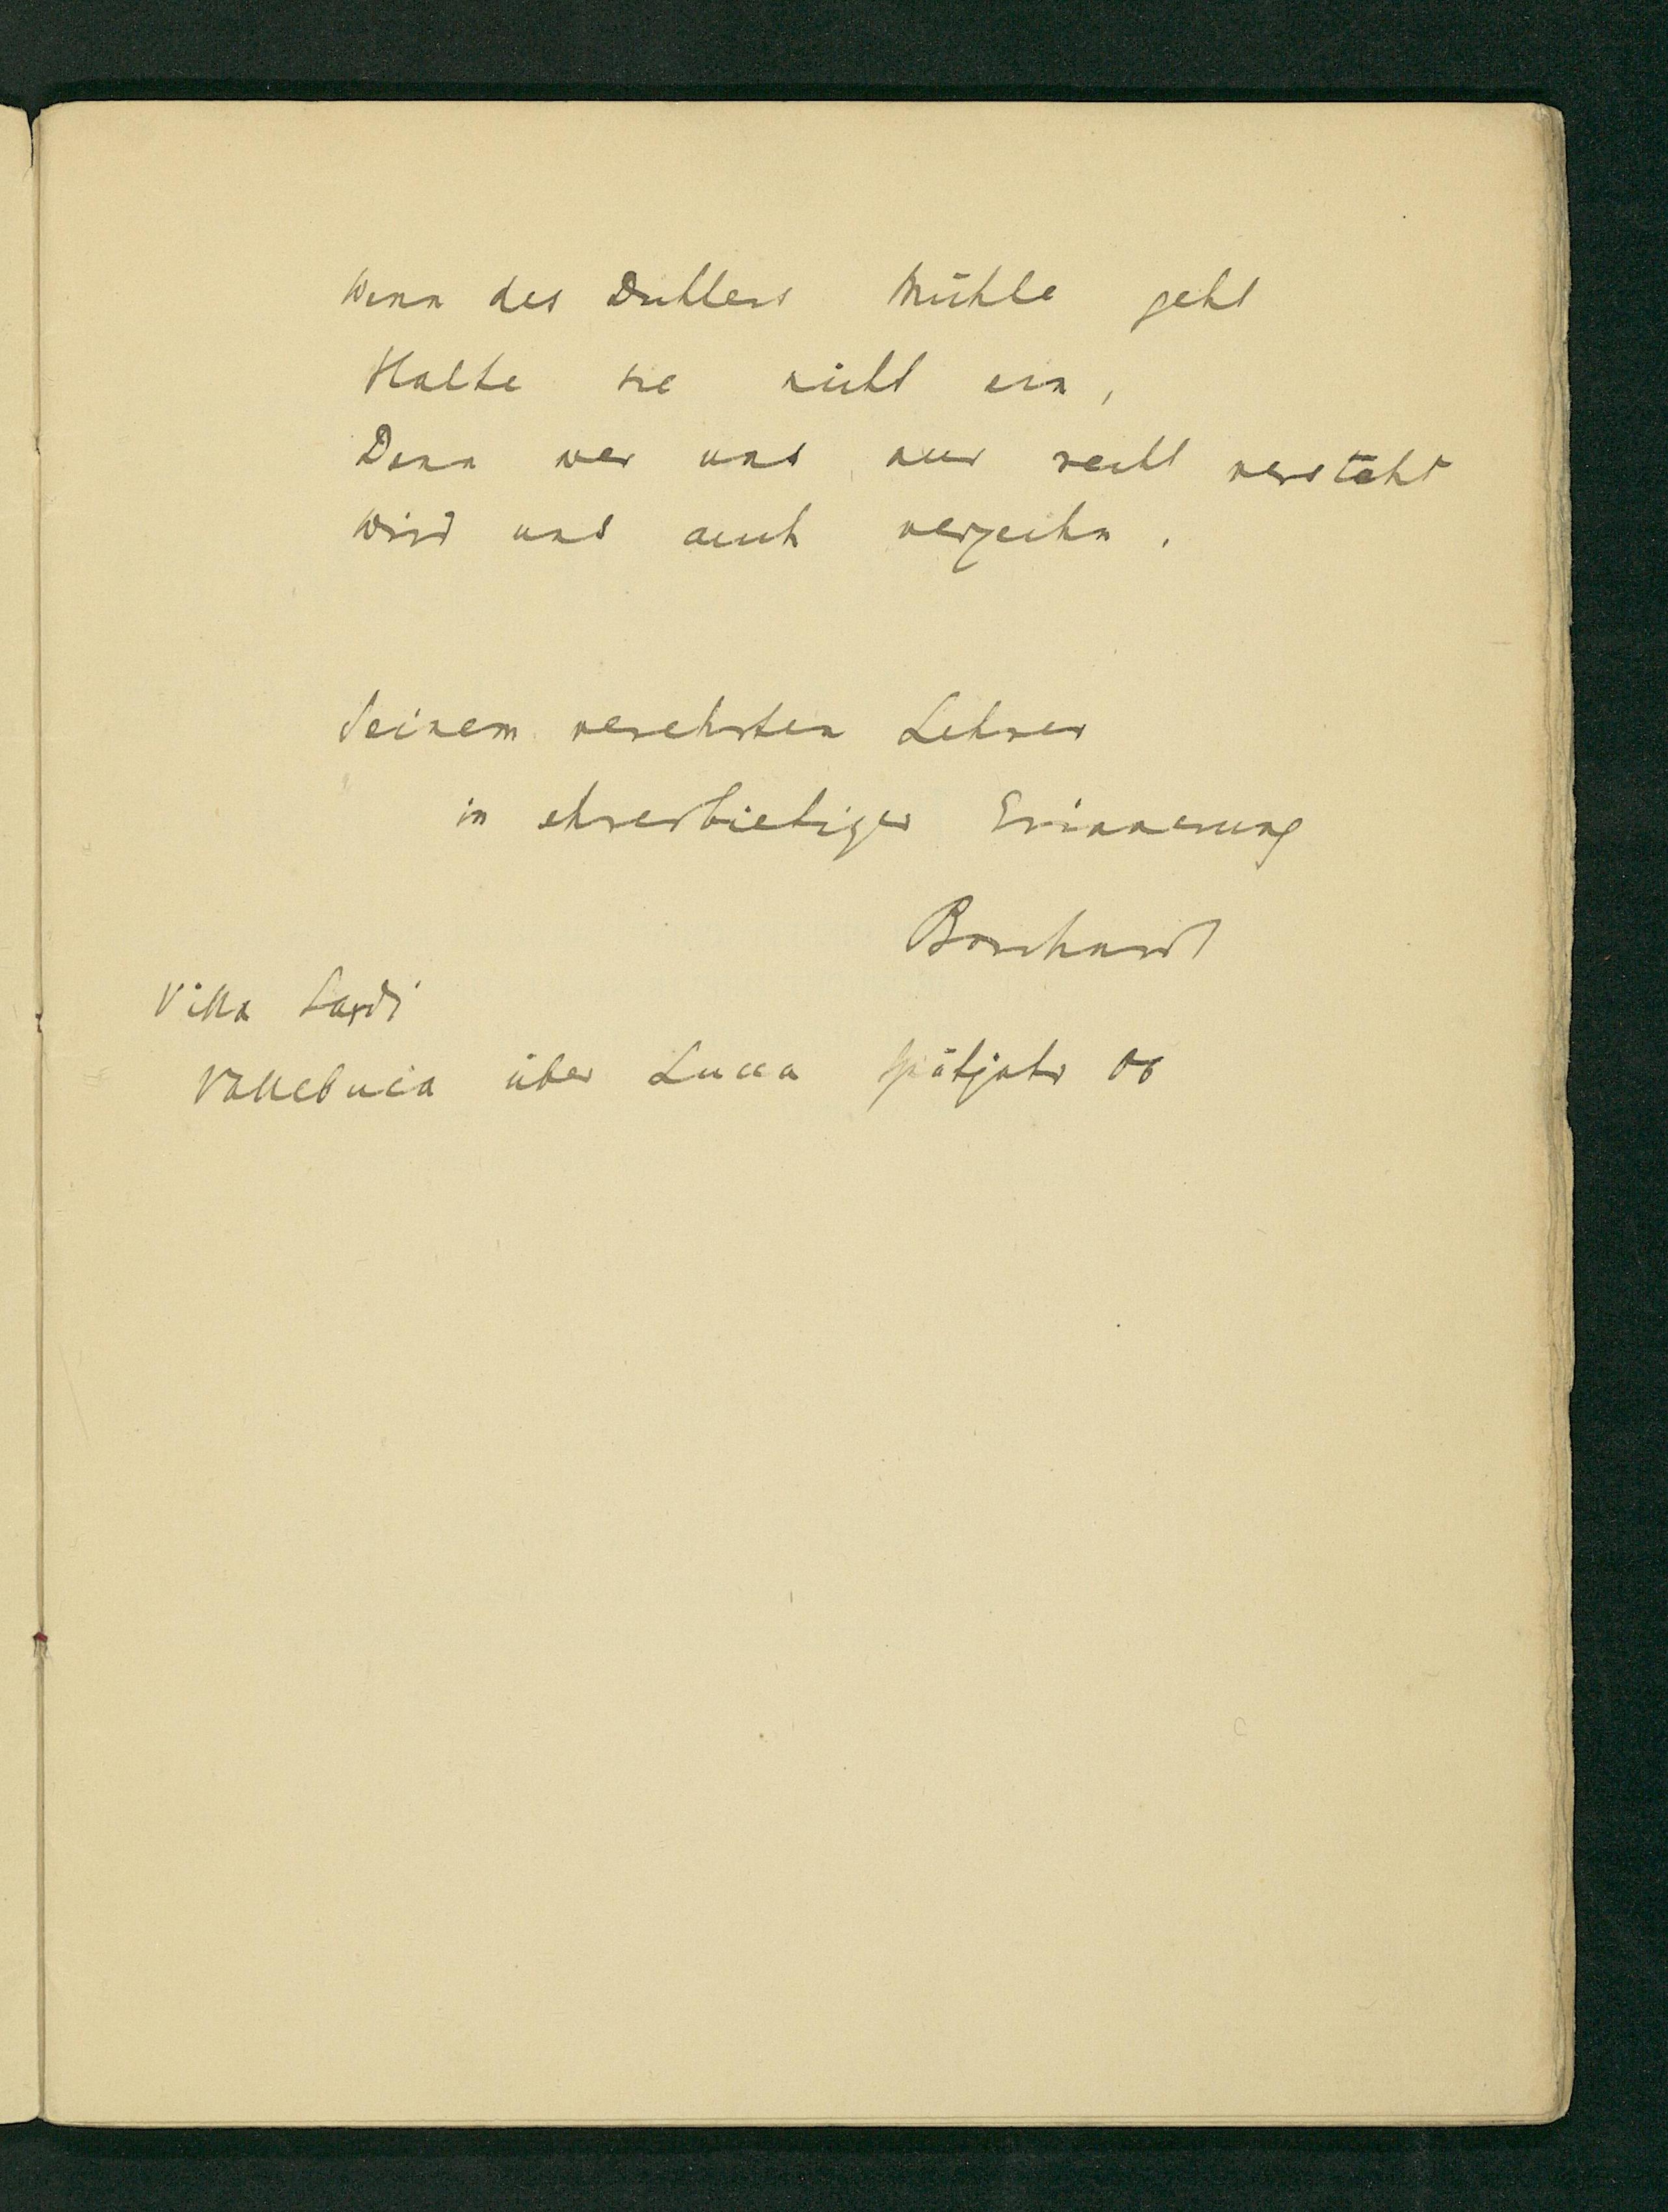 Wenn des Dichters Mühle geht
Halte sie nicht ein,
Denn wer uns nur recht versteht
Wird uns auch verzeihn.
Seinem verehrten Lehrer
in ehrerbietiger Erinnerung
Borchardt
Villa Sardi
Vallebuia über Lucca Spätjahr 06